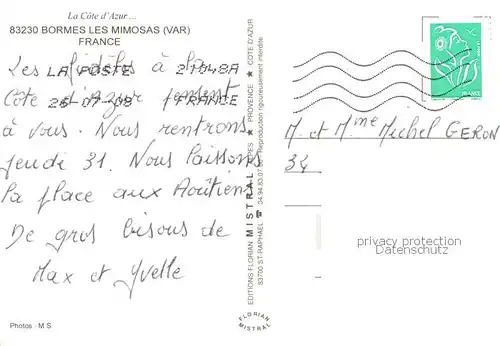 La Côte d'Azur ...
83230 BORMES LES MIMOSAS (VAR)
FRANCE
Les fidèles à la
LA POSTE 21048A
Côte d'azur pensent
25-07-08 FRANCE
à vous. Nous rentrons
jeudi 31. Nous laissons
la place aux Aoûtiens
De gros bisous de
Max et Yvelle
Photos M.S.
EDITIONS FLORIAN MISTRAL ALPES • PROVENCE • CÔTE D'AZUR
83700 ST-RAPHAËL ☎ 04.94.83.07. Reproduction rigoureusement interdite
FLORIAN
MISTRAL
FRANCE
M. et Mme Michel GERON
34
privacy protection
Datenschutz